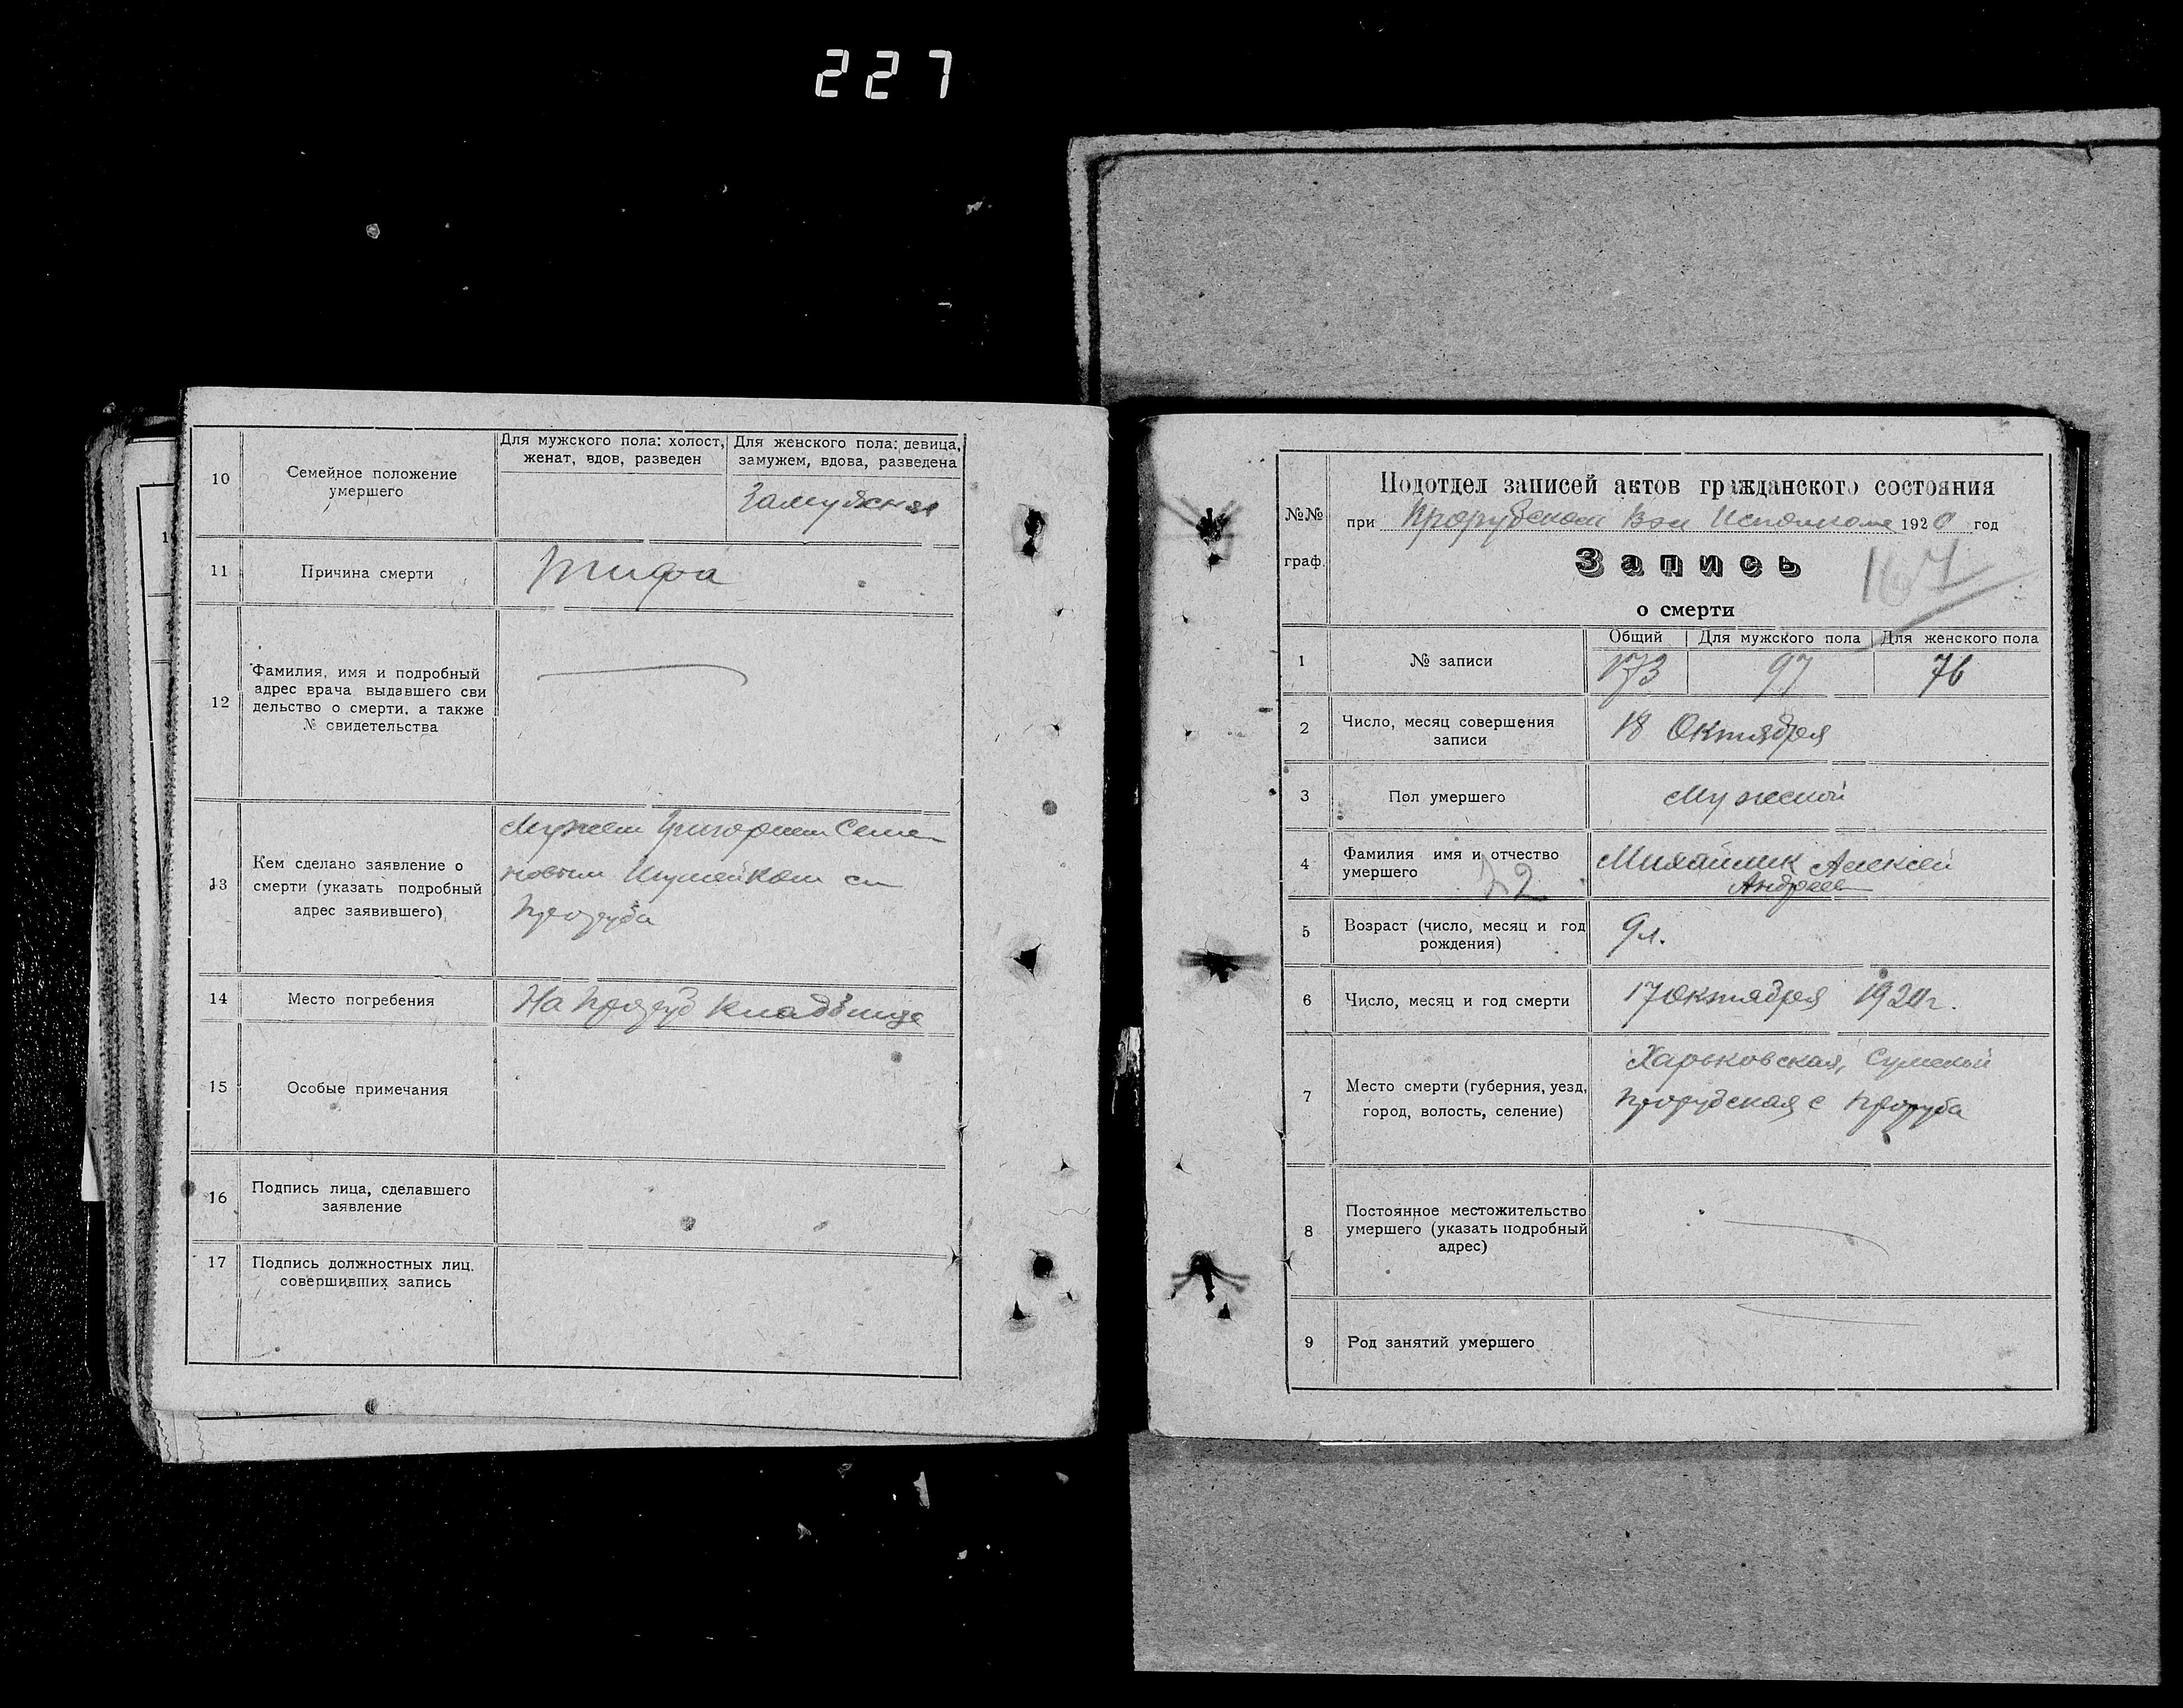 227
10
Семейное положение
умершего
Для мужского пола: холост,
женат, вдов, разведен
Для женского пола: девица,
замужем, вдова, разведена
Замужняя
11
Причина смерти
тифа
12
Фамилия, имя и подробный
адрес врача выдавшего сви
дельство о смерти, а также
№ свидетельства
13
Кем сделано заявление о
смерти (указать подробный
адрес заявившего)
Мужем Григорием Семе
новым Шумейком
Проруба
14
Место погребения
На Проруб кладбище
15
Особые примечания
16
Подпись лица, сделавшего
заявление
17
Подпись должностных лиц.
совершивших запись
№№
граф.
Подотдел записей актов гражданского состояния
при Прорубском Вол Исполкоме 1920 год
Запись
167
о смерти
1
№ записи
Общий
Для мужского пола
Для женского пола
173
97
76
2
Число, месяц совершения
записи
18 Октября
3
Пол умершего
Мужской
4
Фамилия имя и отчество
умершего
Михайлик Алексей
Андреев
5
Возраст (число, месяц и год
рождения)
9л.
6
Число, месяц и год смерти
17 октября 1920г.
7
Место смерти (губерния, уезд,
город, волость, селение)
Харьковская, Сумской
Прорубская с Проруба
8
Постоянное местожительство
умершего (указать подробный
адрес)
9
Род занятий умершего